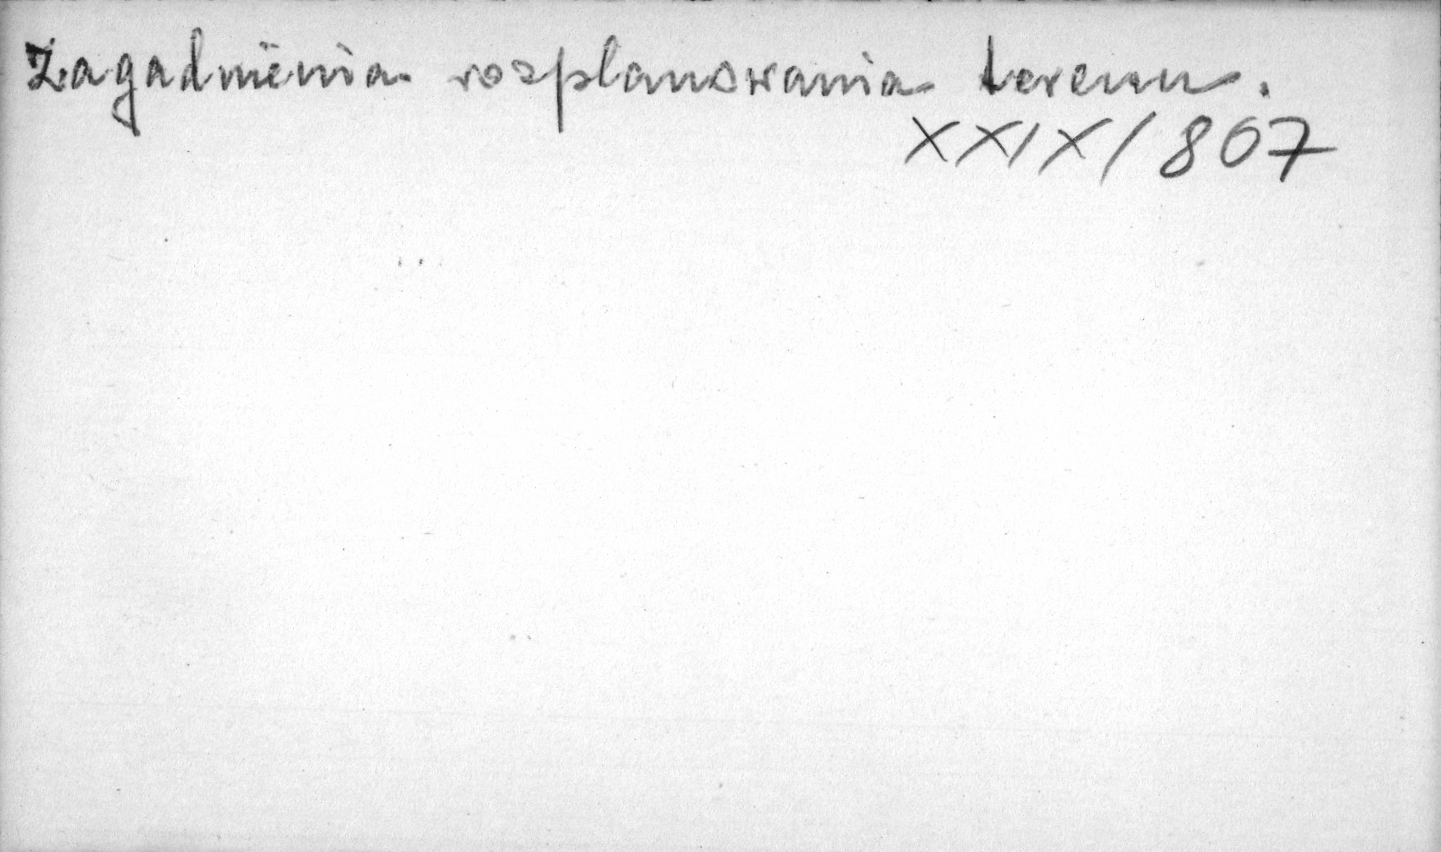 Zagadnienia rozplanowania terenu.
XXIX/807